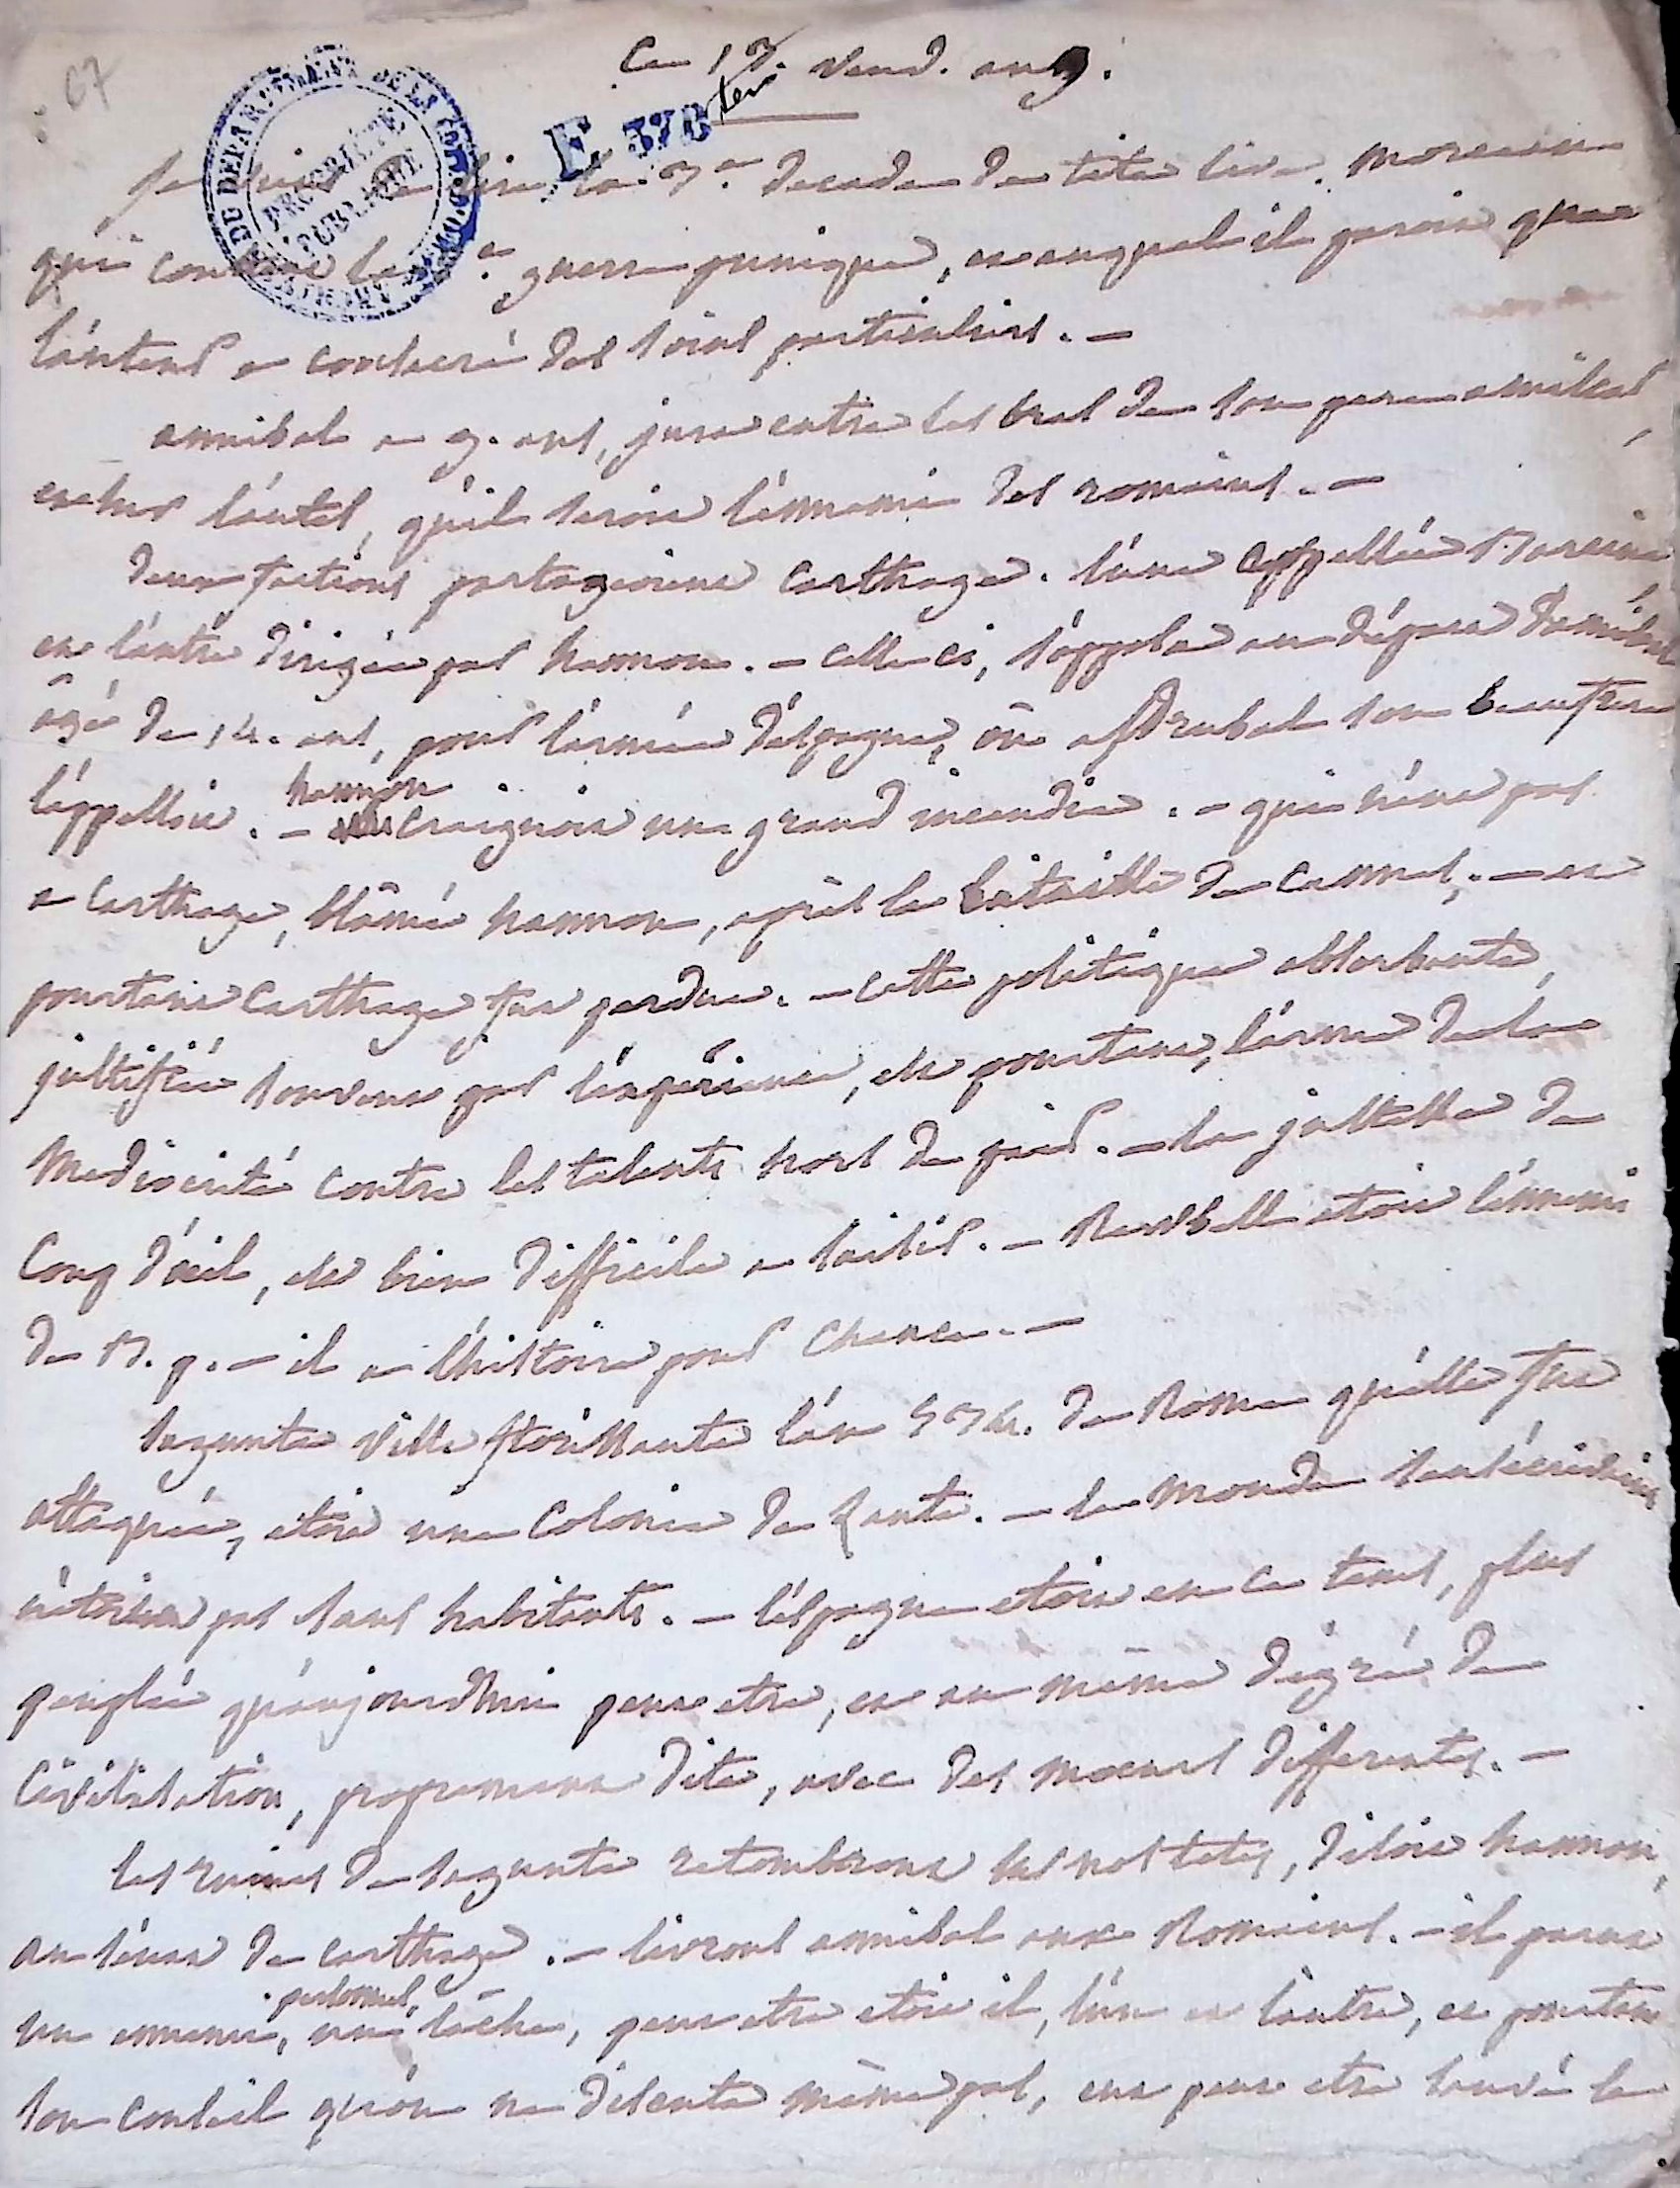 67
Ce 13. vend. an 9.
DU DEPARTEMENT DE LA COTE D'OR
PROPRIÉTÉ PUBLIQUE
ARCHIVES
E 378 ter
Je viens de lire la 3e. decade de tite live. morceau
qui contient la 2e. guerre punique, et auquel il paroit que
l'auteur a consacré des soins particuliers. —
annibal a 9. ans, jura entre les bras de son pere amilcar,
et sur l'autel, qu'il seroit l'ennemi des romains. —
deux factions partageoient Carthage. l'une appellée Barcine
et l'autre dirigée par hannon. — celle ci, s'opposa au départ d'annibal
agé de 14. ans, pour l'armée d'espagne, où asdrubal son beaufrere
l'appelloit. — hannon craignoit un grand incendie. — qui n'eut pas
a Carthage, blâmé hannon, après la bataille de Cannes, — et
pourtant Carthage fut perdue. — cette politique absorbante,
justifiée souvent par l'expérience, est pourtant, l'arme de la
médiocrité contre les talents hors de pair. — la justesse de
Coup d'oeil, est bien difficile a saisir. — Rewbell etoit l'ennemi
de B. p. — il a l'histoire pour chance. —
sagunte ville florissante l'an 534. de Rome qu'elle fut
attaquée, etoit une Colonie de Zante. — le monde
n'étoit pas sans habitants. — l'espagne etoit en ce tems, plus
peuplée qu'aujourd'hui peut etre, et au même dégré de
Civilisation, proprement dite, avec des moeurs differentes. —
les ruines de sagunte retomberont sur nos tetes, disoit hannon,
au sénat de carthage. — livrons annibal aux Romains. — il parut
un ennemi personnel, un lâche, peut etre etoit il, l'un et l'autre, et pourtant
son conseil qu'on ne discuta même pas, eut peut etre sauvé la